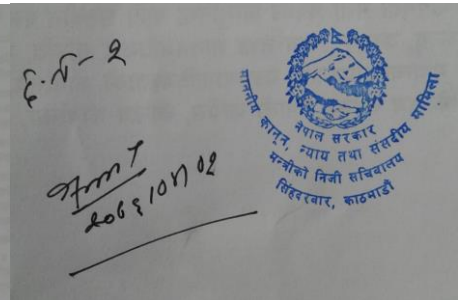 द.नं- २
२०७६/०५/०२
नेपाल सरकार
माननीय कानून, न्याय तथा संसदीय मामिला
मन्त्रीको निजी सचिवालय
सिंहदरवार, काठमाडौं